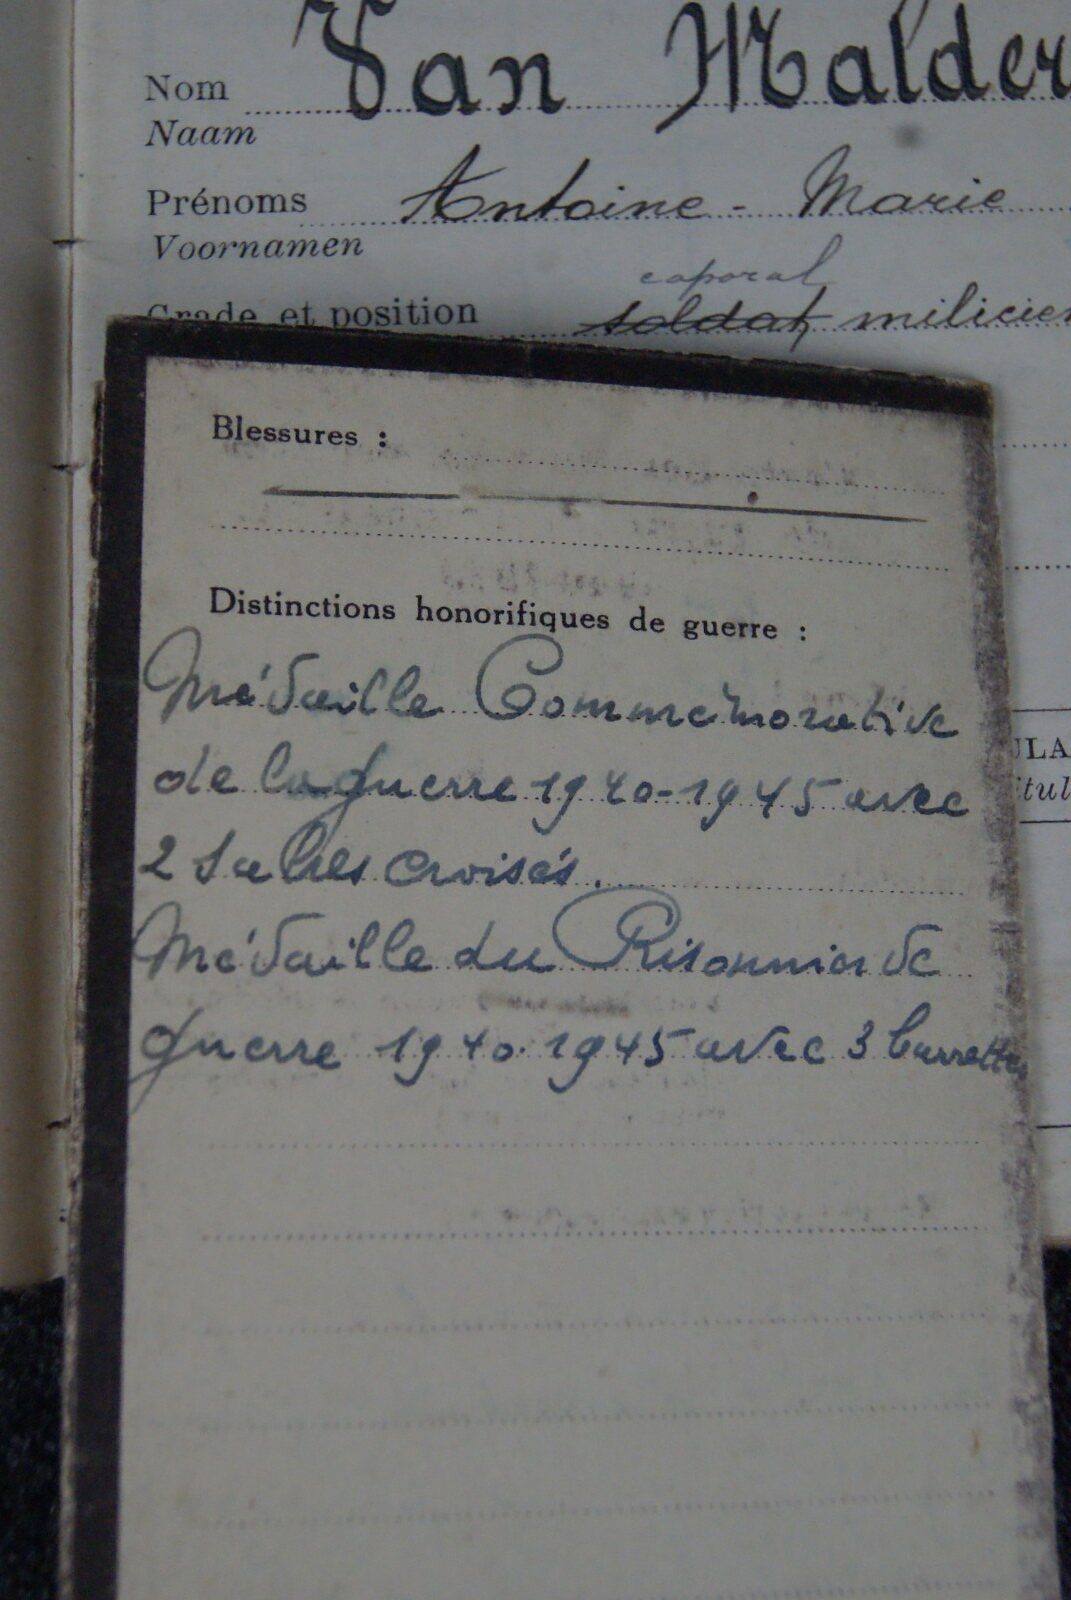 Nom Van Malder
Naam
Prénoms Antoine - Marie
Voornamen
caporal
Grade et position soldat milicien
Blessures :
Distinctions honorifiques de guerre :
Médaille Commémorative
de la guerre 1940-1945 avec
2 sabres croisés.
Médaille du Prisonnier de
guerre 1940-1945 avec 3 barrettes
ULA
itul